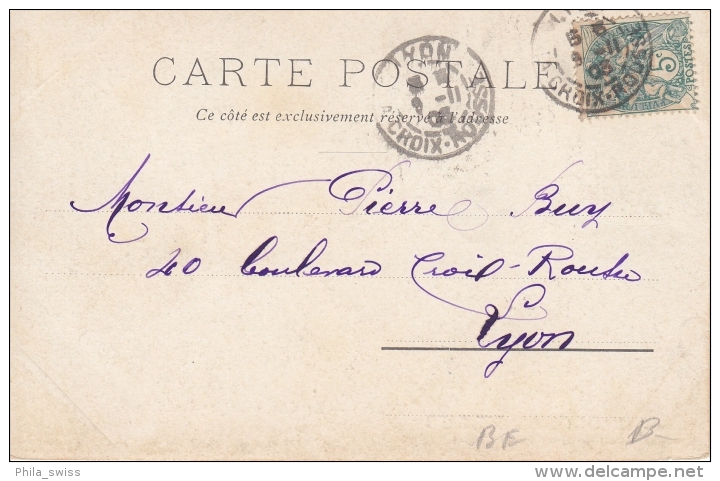 CARTE POSTALE
Ce côté est exclusivement réservé à l'adresse
LYON
CROIX-ROUSSE
5c
POSTES
CROIX-ROUSSE
Monsieur Pierre Buy
40 boulevard Croix-Rousse
Lyon
BE B-
Phila_swiss
delcampe.net